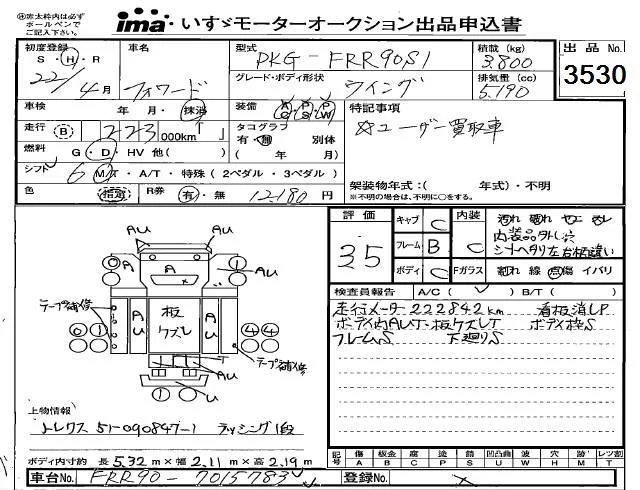 ㊟赤太枠内は必ず
ボールペンで
ご記入ください。
ima いすゞモーターオークション出品申込書
初度登録
S・H・R
22/4月
車名
フォワード
型式
PKG-FRR90S1
グレード・ボディ形状
ウイング
積載(kg)
3.800
排気量(cc)
5.190
出品No.
3530
車検 年・月・抹消
装備 AC PS PW
特記事項
☆ユーザー買取車
走行 B 223 000km
タコグラフ
有・無 別体
( 年 月)
燃料 G・D・HV 他( )
シフト 6 M/T・A/T・特殊(2ペダル・3ペダル)
架装物年式:( 年式)・不明
※不明の場合は、不明に○をする。
色 指定 R券 有・無 12.180円
評価
3.5
キャブ C
フレーム B
ボディ C
内装 C
Fガラス
汚れ 破れ セニ
内装品外し穴
シートヘタリ 左台柄違い
割れ 線 点傷 イバリ
検査員報告 A/C( ) B/T( )
走行メーター222842km 看板消しP
ボディ内AUT・板クズレT ボディ枠S
フレームS 下廻りS
AU
AU
A
A
1
テープ補修
0 1
A U
板クズレ
A U
4 4
テープ補修
AU
AU
1
上物情報
トレクス 51-090847-1 ラッシング1段
ボディ内寸約 長 5.32 m×幅 2.11 m×高 2.19 m
記号 傷 A 板金 B 腐 C 塗 P 錆 S 凹凸曲 U 波 W 穴 H 跡 M レツ割 T
車台No. FRR90-7015783
登録No.